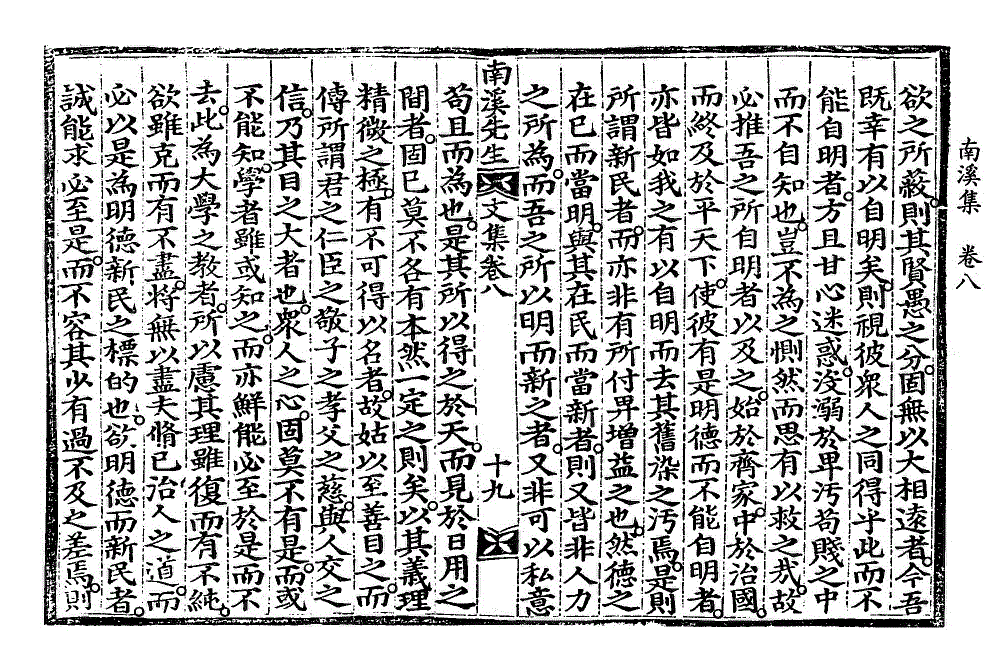 南溪集 卷八
欲之所蔽則其賢愚之分固無以大相遠者今吾
既幸有以自明矣則視彼衆人之同得乎此而不
能自明者方且甘心迷惑没溺於卑汚苟賤之中
而不自知也豈不為之惻然而思有以救之哉故
必推吾之所自明者以及之始於齊家中於治國
而終及於平天下使彼有是明德而不能自明者
亦皆如我之有以自明而去其舊染之汚焉是則
所謂新民者而亦非有所付畀增益之也然德之
在己而當明與其在民而當新者則又皆非人力
之所為而吾之所以明而新之者又非可以私意
南溪先生文集卷八 十九
苟且而為也是其所以得之於天而見於日用之
間者固已莫不各有本然一定之則矣以其義理
精微之極有不可得以名者故姑以至善目之而
傳所謂君之仁臣之敬子之孝父之慈與人交之
信乃其目之大者也衆人之心固莫不有是而或
不能知學者雖或知之而亦鮮能必至於是而不
去此為大學之教者所以慮其理雖復而有不純
欲雖克而有不盡將無以盡夫脩己治人之道而
必以是為明德新民之標的也欲明德而新民者
誠能求必至是而不容其少有過不及之差焉則